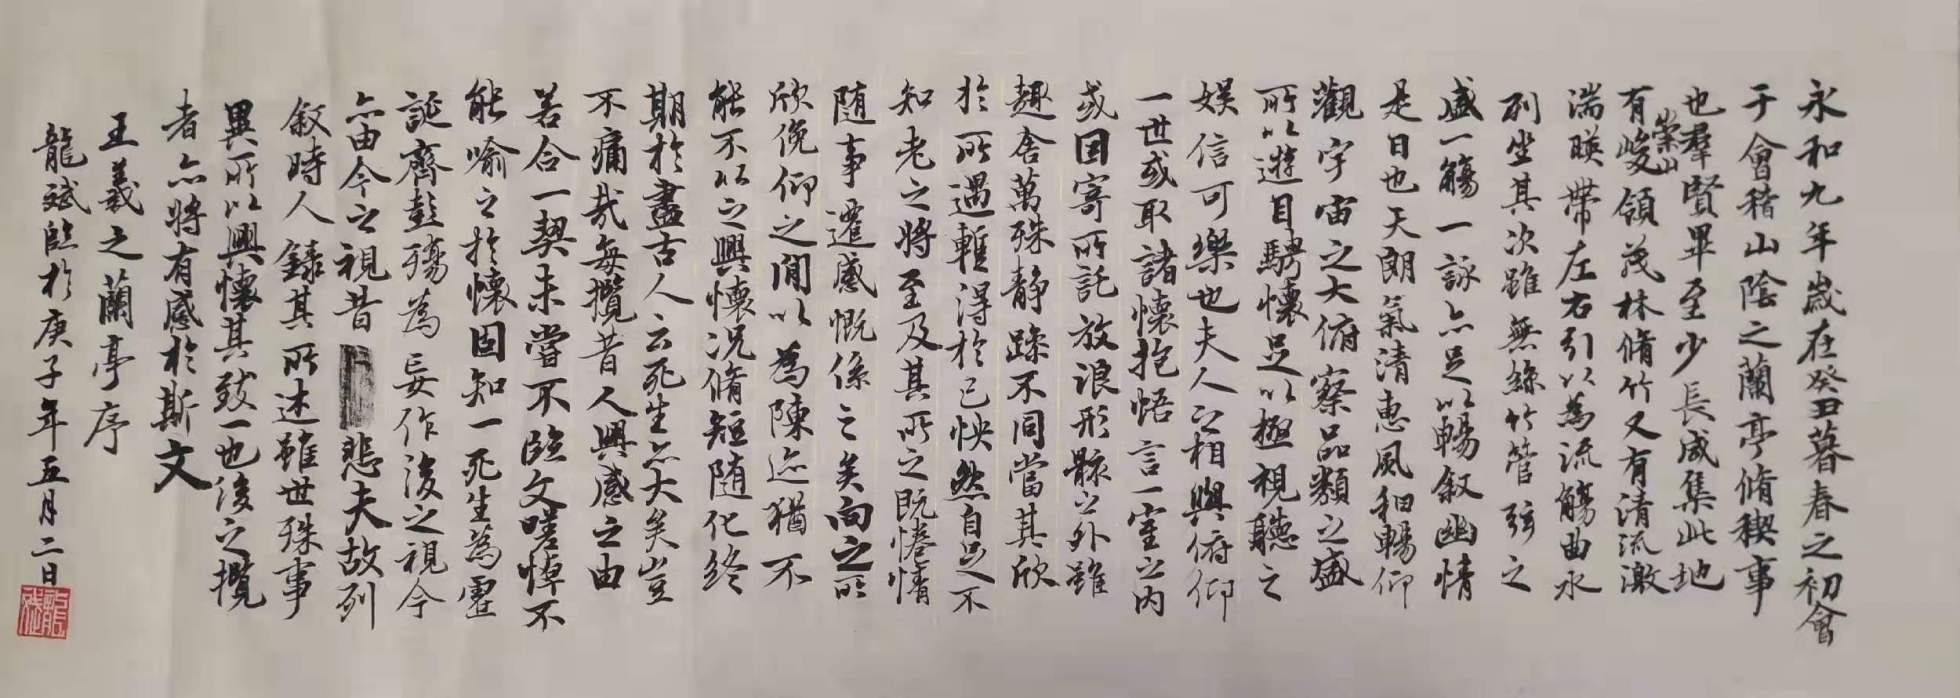 永和九年歲在癸丑暮春之初會
于會稽山陰之蘭亭脩稧事
也羣賢畢至少長咸集此地
有崇山峻領茂林脩竹又有清流激
湍暎帶左右引以為流觴曲水
列坐其次雖無絲竹管弦之
盛一觴一詠亦足以暢敘幽情
是日也天朗氣清惠風和暢仰
觀宇宙之大俯察品類之盛
所以遊目騁懷足以極視聽之
娛信可樂也夫人之相與俯仰
一世或取諸懷抱悟言一室之內
或因寄所託放浪形骸之外雖
趣舍萬殊靜躁不同當其欣
於所遇暫得於己怏然自足不
知老之將至及其所之既惓情
隨事遷感慨係之矣向之所
欣俛仰之間以為陳迹猶不
能不以之興懷況脩短隨化終
期於盡古人云死生亦大矣豈
不痛哉每攬昔人興感之由
若合一契未嘗不臨文嗟悼不
能喻之於懷固知一死生為虛
誕齊彭殤為妄作後之視今
亦由今之視昔悲夫故列
敘時人錄其所述雖世殊事
異所以興懷其致一也後之攬
者亦將有感於斯文
王羲之蘭亭序
龍斌臨於庚子年五月二日